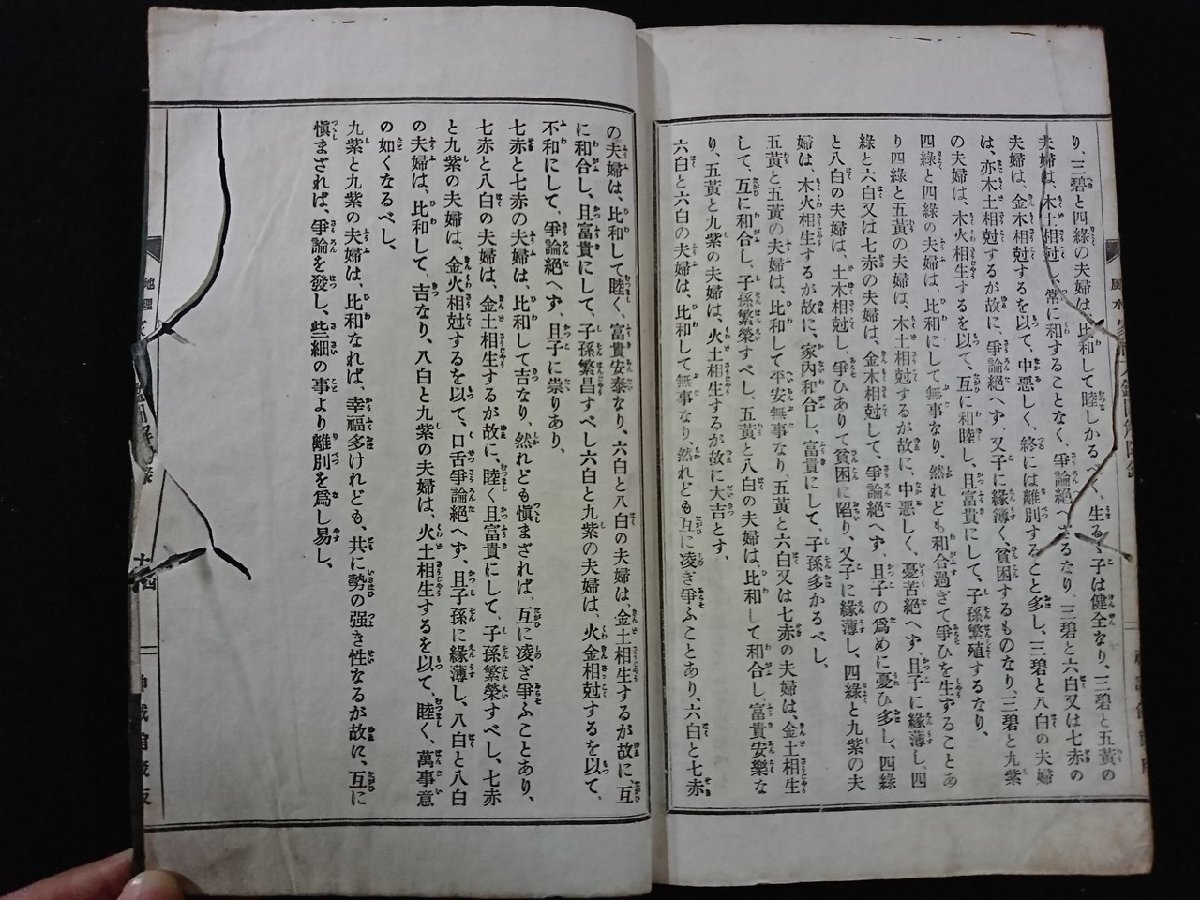 り、三碧と四綠の夫婦は、比和して睦しかるべく、生るゝ子は健全なり、三碧と五黃の
夫婦は、木土相尅し、常に和することなく、爭論絕へざるなり、三碧と六白又は七赤の
夫婦は、金木相尅するを以て、中惡しく、終には離別すること多し、三碧と八白の夫婦
は、亦木土相尅するが故に、爭論絕へず、又子に緣簿く、貧困するものなり、三碧と九紫
の夫婦は、木火相生するを以て、互に和睦し、且富貴にして、子孫繁殖するなり、
四綠と四綠の夫婦は、比和にして無事なり、然れども和合過ぎて爭ひを生ずることあ
り四綠と五黃の夫婦は、木土相尅するが故に、中惡しく、憂苦絕へず、且子に緣薄し、四
綠と六白又は七赤の夫婦は、金木相尅して、爭論絕へず、且子の爲めに憂ひ多し、四綠
と八白の夫婦は、土木相尅し、爭ひありて貧困に陷り、又子に緣薄し、四綠と九紫の夫
婦は、木火相生するが故に、家內和合し、富貴にして、子孫多かるべし、
五黃と五黃の夫婦は、比和して平安無事なり、五黃と六白又は七赤の夫婦は、金土相生
して、互に和合し、子孫繁榮すべし、五黃と八白の夫婦は、比和して和合し、富貴安樂な
り、五黃と九紫の夫婦は、火土相生するが故に大吉とす、
六白と六白の夫婦は、比和して無事なり、然れども互に凌ぎ爭ふことあり、六白と七赤
の夫婦は、比和して睦く、富貴安泰なり、六白と八白の夫婦は、金土相生するが故に、互
に和合し、且富貴にして、子孫繁昌すべし六白と九紫の夫婦は、火金相尅するを以て、
不和にして、爭論絕へず、且子に祟りあり、
七赤と七赤の夫婦は、比和して吉なり、然れども愼まざれば、互に凌ぎ爭ふことあり、
七赤と八白の夫婦は、金土相生するが故に、睦く且富貴にして、子孫繁榮すべし、七赤
と九紫の夫婦は、金火相尅するを以て、口舌爭論絕へず、且子孫に緣薄し、八白と八白
の夫婦は、比和して、吉なり、八白と九紫の夫婦は、火土相生するを以て、睦く、萬事意
の如くなるべし、
九紫と九紫の夫婦は、比和なれば、幸福多けれども、共に勢の强き性なるが故に、互に
愼まざれば、爭論を發し、些細の事より離別を爲し易し、
十四